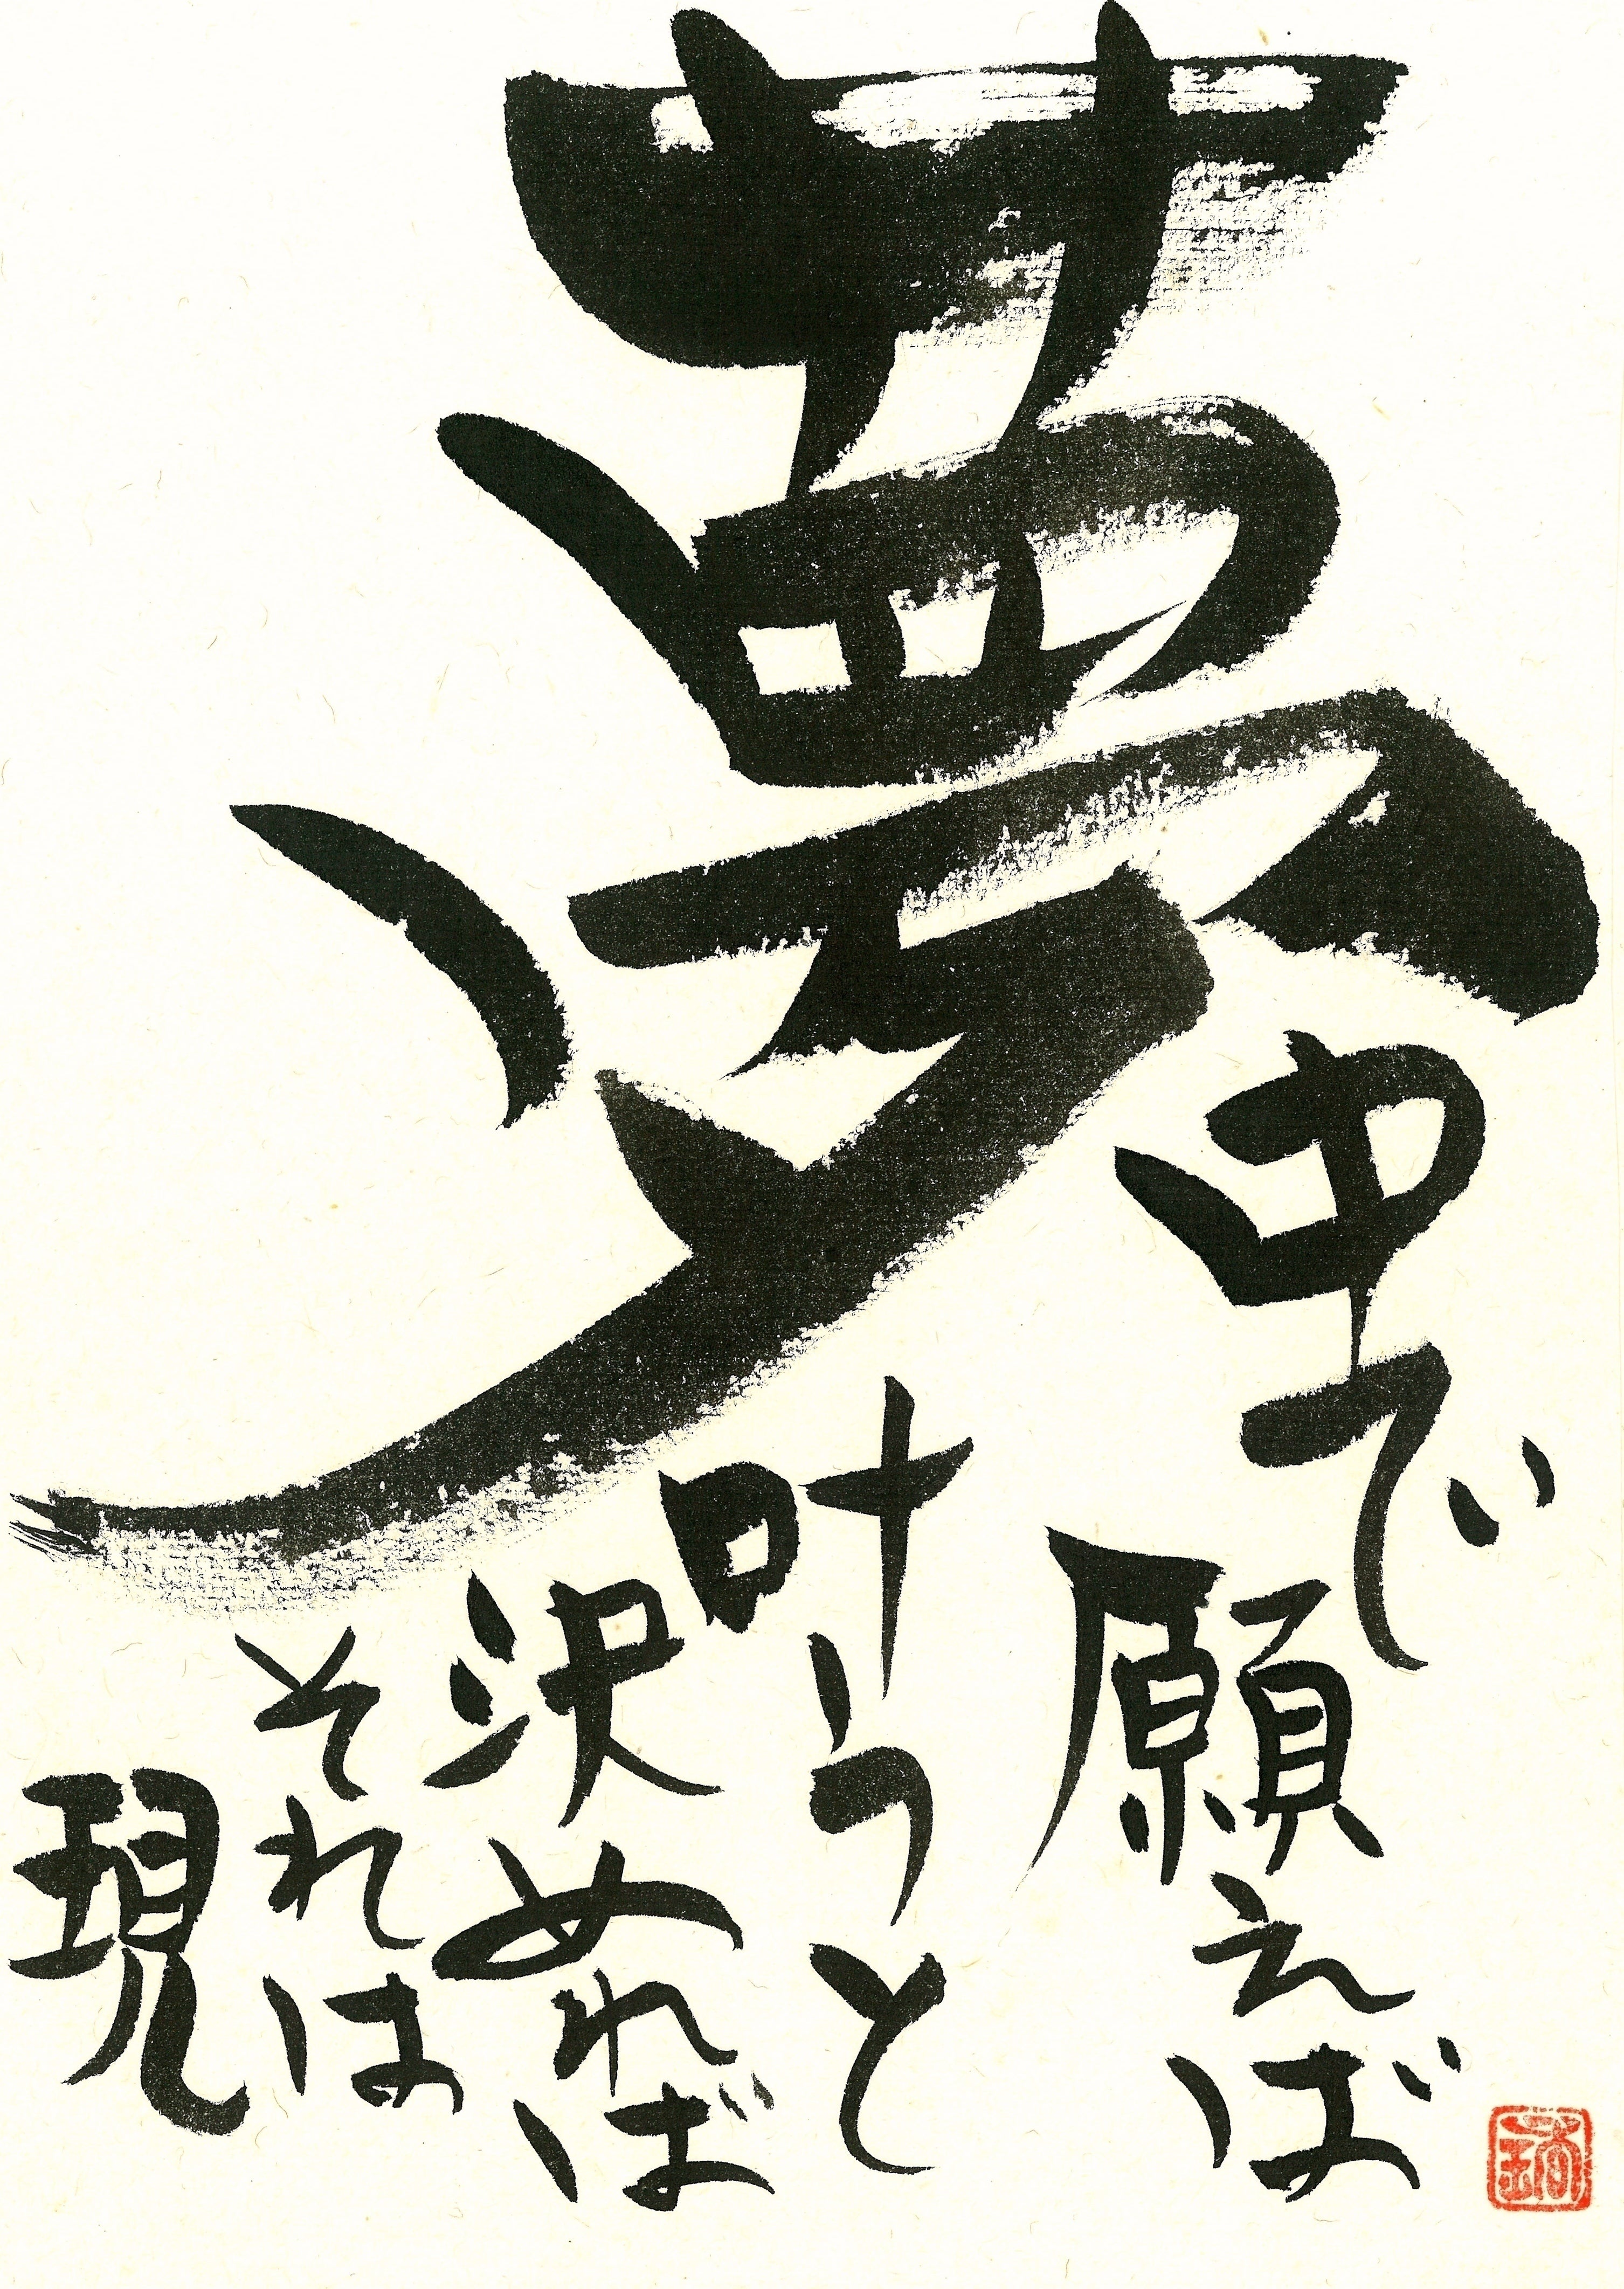 夢中で
願えば
叶うと
決めれば
それは
現